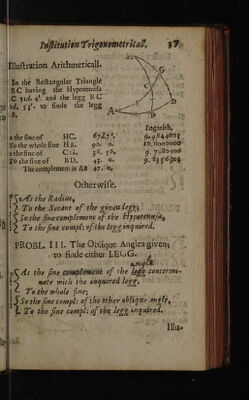 Institution Trigonometricall. 37
Illustration Arithmeticall.
In the Rectangular Triangle
BC having the Hypotenusa
C 51d. 4'. and the legg BC
1d, 53'. to finde the legg
B.
Logarith.
s the sine of HC.
To the whole sine HE. 90. 0. 10,0000000
o the sine of CG. 38. 56.
To the sine of BD. 43. 0.
The complement is AB 47. 0.
Otherwise.
As the Radius,
To the Secant of the given legg;
So the sine complement of the Hypotenusa,
To the sine compl: of the legg inquired.
PROBL. III. The Oblique Angles given;
to finde either LEGG.
angle
As the sine complement of the legg contermi-
nate with the inquired legg,
To the whole sine;
So the sine compl: of the other oblique angle,
To the sine compl: of the legg inquired.
Illu-